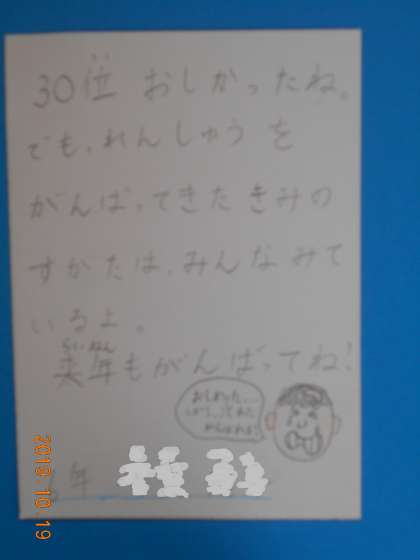 30位 おしかったね。
でも、れんしゅうを
がんばってきたきみの
すがたは、みんなみて
いるよ。
来年もがんばってね!
らいねん
おしかった…
がんばれ!
年
2018.10.19